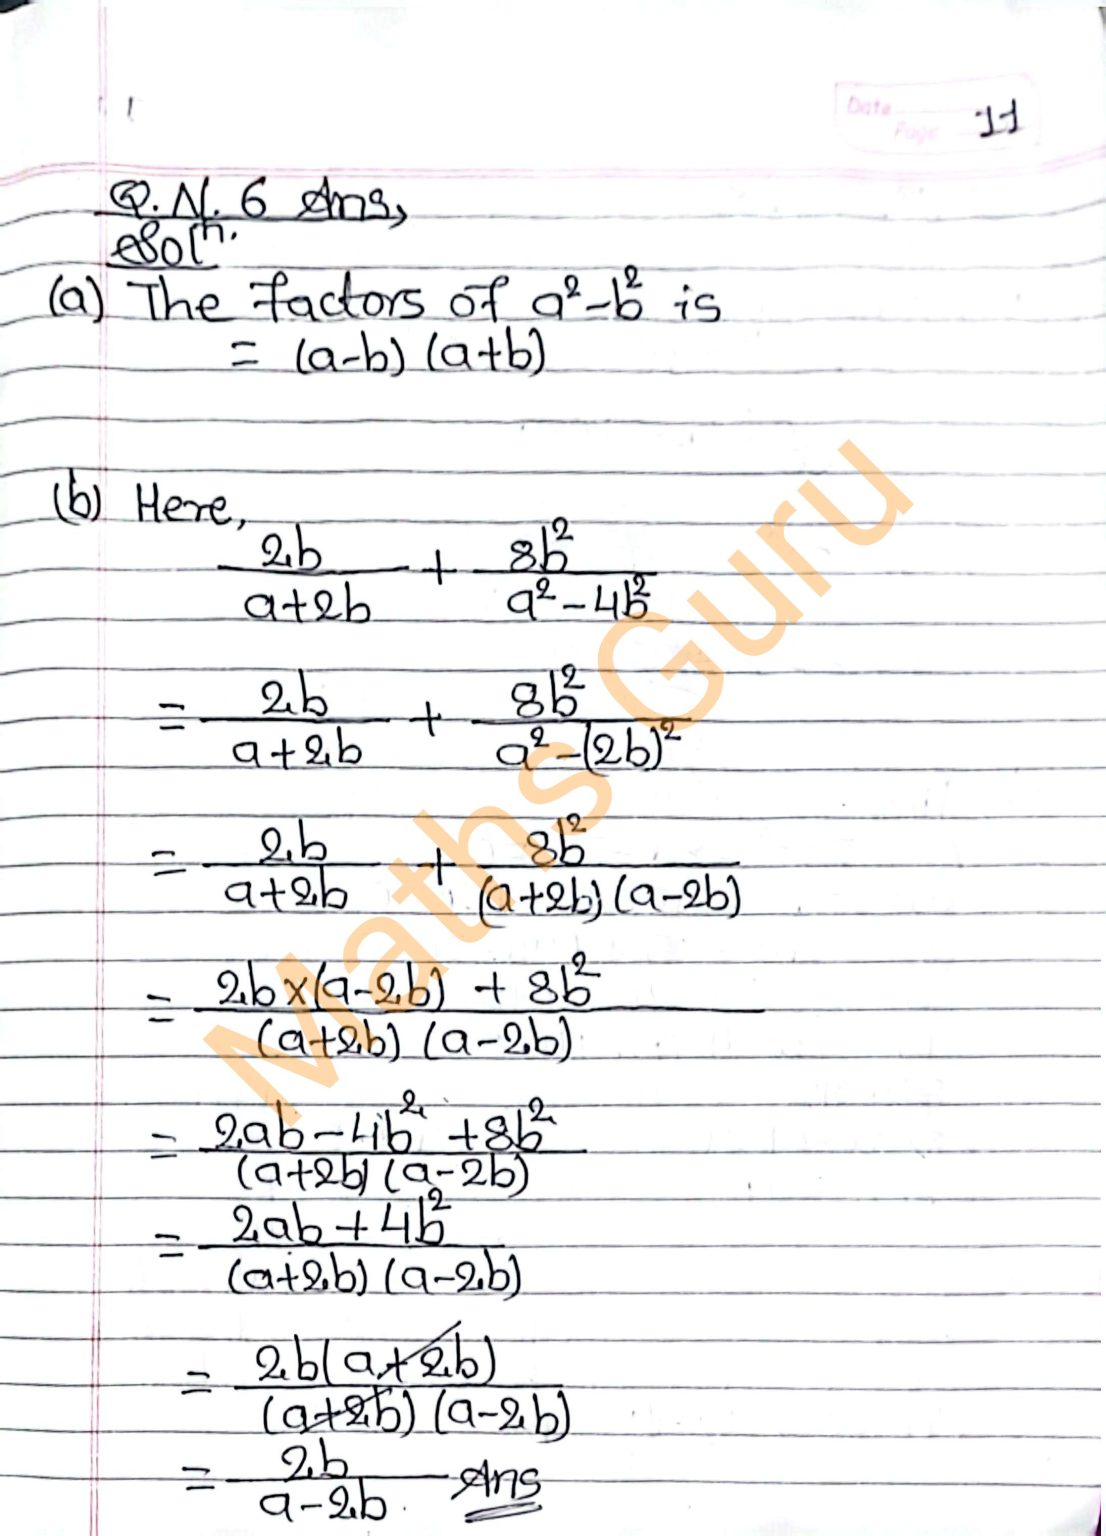 Date
Page 11
Q.N. 6 Ans,
Solⁿ.
(a) The factors of a²-b² is
= (a-b) (a+b)
(b) Here,
2b/(a+2b) + 8b²/(a²-4b²)
= 2b/(a+2b) + 8b²/(a²-(2b)²)
= 2b/(a+2b) + 8b²/((a+2b) (a-2b))
= (2b×(a-2b) + 8b²)/((a+2b) (a-2b))
= (2ab-4b² +8b²)/((a+2b) (a-2b))
= (2ab+4b²)/((a+2b) (a-2b))
= 2b(a+2b)/((a+2b) (a-2b))
= 2b/(a-2b) Ans
Maths Guru